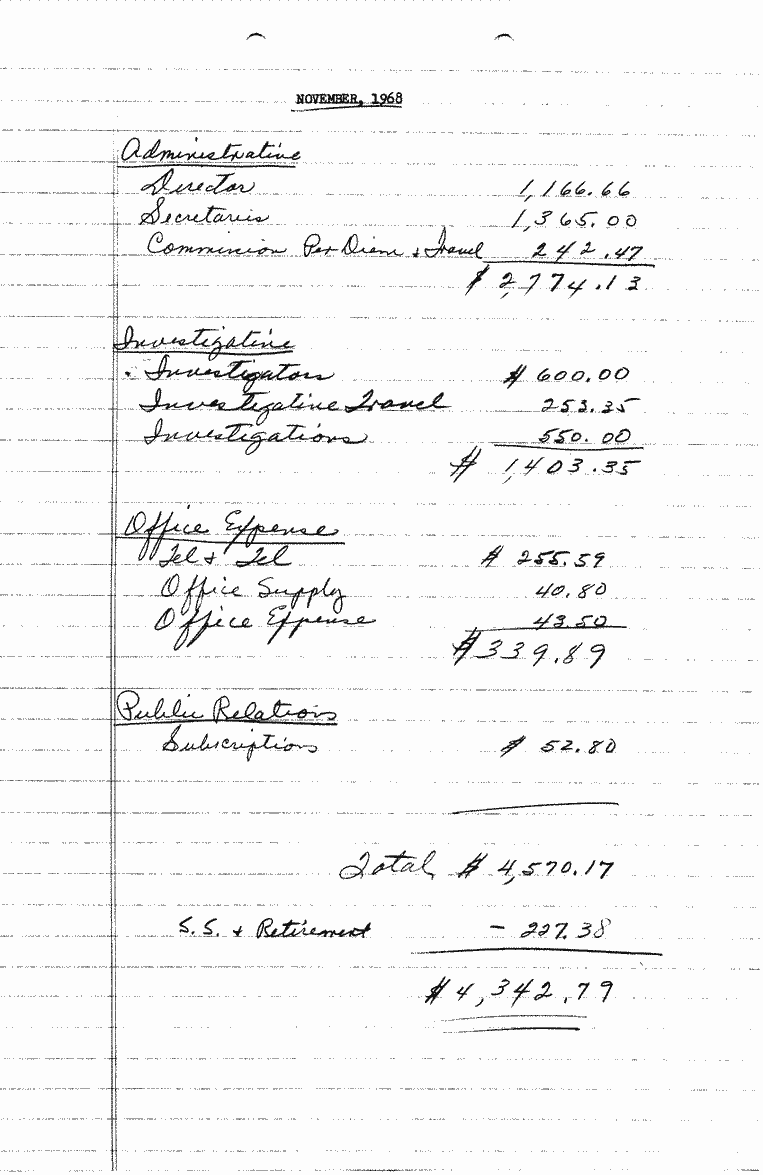 NOVEMBER, 1968
Administrative
Director 1,166.66
Secretaries 1,365.00
Commission Per Diem & Travel 242.47
$ 2,774.13
Investigative
Investigators $ 600.00
Investigative Travel 253.35
Investigations 550.00
$ 1,403.35
Office Expense
Tel & Tel $ 255.59
Office Supply 40.80
Office Expense 43.50
$339.89
Public Relations
Subscriptions $ 52.80
Total $ 4,570.17
S.S. & Retirement - 227.38
$4,342.79